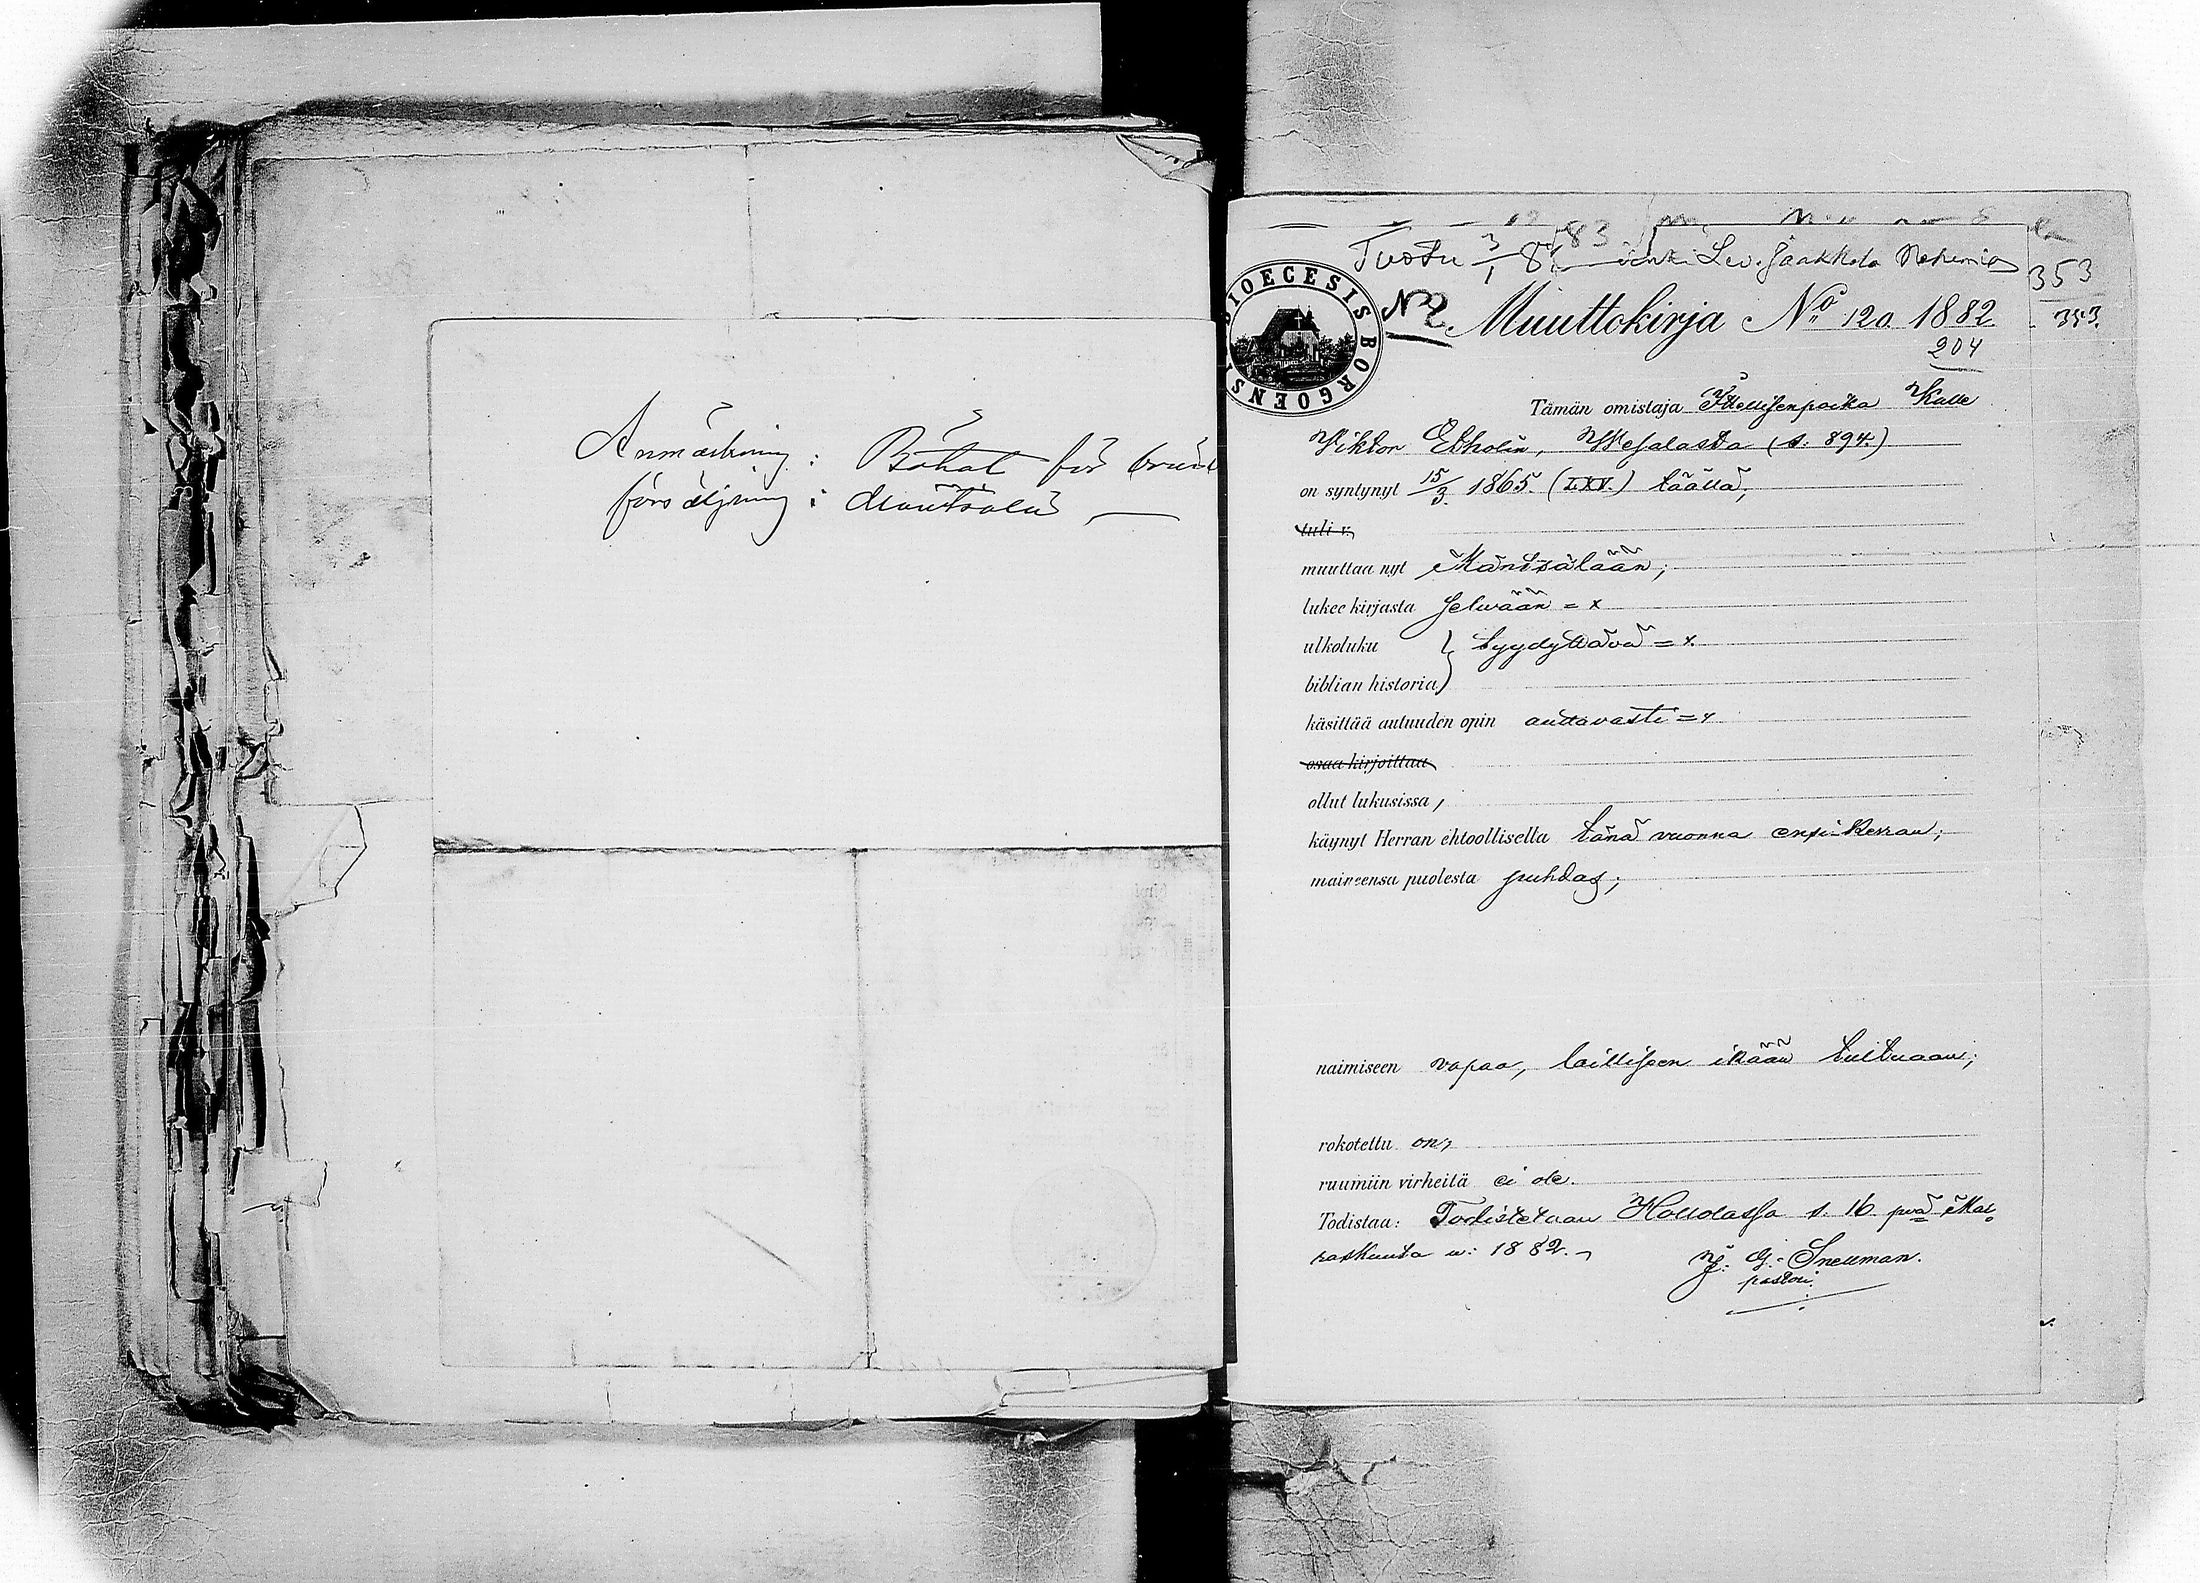 Anmärkning: Bötat för brän
försäljning i Mäntsälä
Tuotu 3/1 83 Lev. Jaakkola Nehemias
353
DIOECESIS BORGOENSIS
N 2 Muuttokirja No 120 1882
343.
204
Tämän omistaja Itellisenpoika Kalle
Viktor Ekholin, Wesalasta (s. 894.)
on syntynyt 15/3 1865. (LXV.) täällä,
tuli v.
muuttaa nyt Mäntsälään;
lukee kirjasta selwään = x
ulkoluku } tyydyttävä = x.
biblian historia
käsittää autuuden opin auttavasti = x
osaa kirjoittaa
ollut lukusissa,
käynyt Herran ehtoollisella tänä vuonna ensi-kerran;
maineensa puolesta puhdas;
naimiseen vapaa, lailliseen ikään tultuaan;
rokotettu on,
ruumiin virheitä ei ole.
Todistaa: Todistetaan Hollolassa s. 16 pvä Mar
raskuuta w: 1882.
G. Sneuman.
pastori.